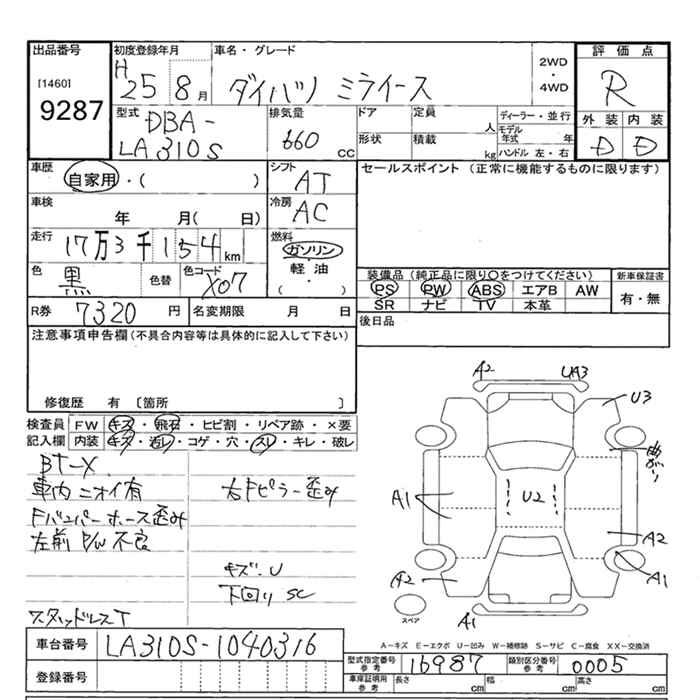 出品番号
[1460]
9287
初度登録年月
H25 8月
車名・グレード
ダイハツ ミライース
2WD
・
4WD
評価点
R
外装 内装
D D
型式
DBA-
LA310S
排気量
660 cc
ドア
形状
定員 人
積載 kg
ディーラー・並行
モデル年式 年
ハンドル 左・右
車歴
自家用・( )
シフト
AT
セールスポイント (正常に機能するものに限ります)
車検
年 月( 日)
冷房
AC
走行
17万3千154km
燃料
ガソリン
軽油
( ・ )
色
黒
色替
色コード
X07
装備品(純正品に限り○をつけてください)
PS PW ABS エアB AW
SR ナビ TV 本革
新車保証書
有・無
R券
7320 円
名変期限 月 日
後日品
注意事項申告欄(不具合内容等は具体的に記入して下さい)
修復歴 有 〔箇所 〕
検査員 FW キズ・飛石・ヒビ割・リペア跡・×要
記入欄 内装 キズ・汚レ・コゲ・穴・スレ・キレ・破レ
BT-X
車内ニオイ有
Fバンパーホース歪み
左前 P/W 不良
スタッドレスT
右Fピラー歪み
キズ.U
下回り SC
A2
UA3
U3
曲がり
A1
U2
A2
A2
A1
A1
スペア
A-キズ E-エクボ U-凹み W-補修跡 S-サビ C-腐食 XX-交換済
車台番号
LA310S-1040316
登録番号
型式指定番号
参考
16987
類別区分番号
参考
0005
車庫証明用
参考
長さ cm
幅 cm
高さ cm